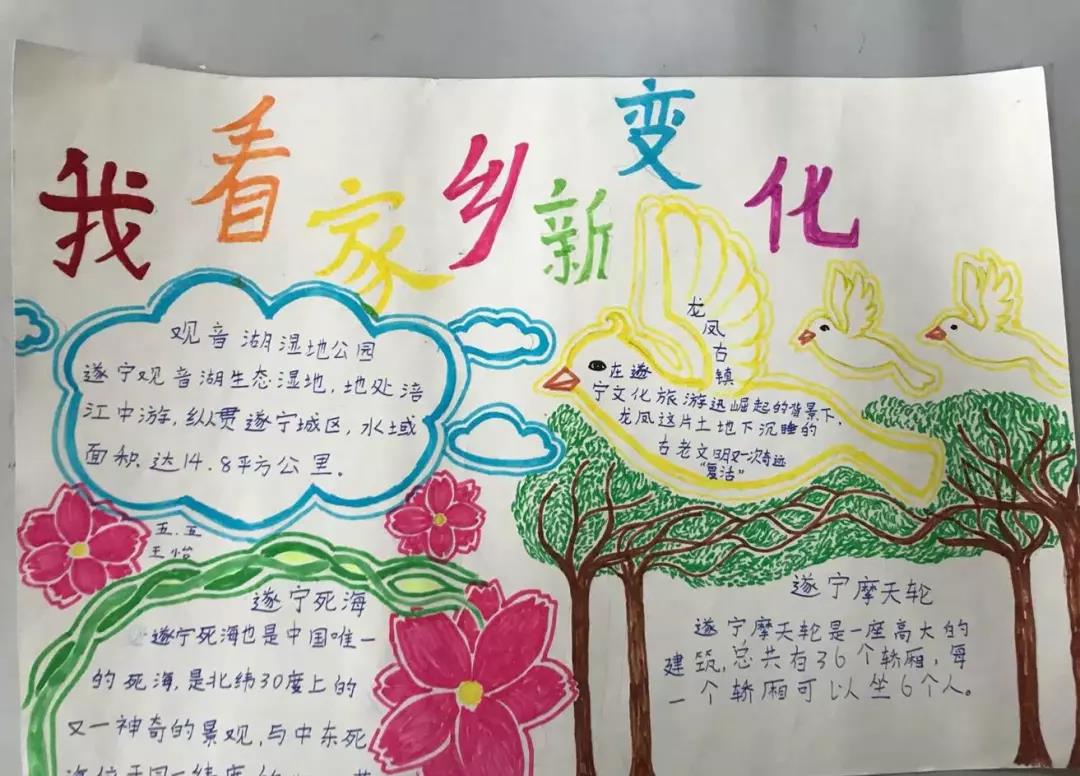 我看家乡新变化
观音湖湿地公园
遂宁观音湖生态湿地，地处涪
江中游，纵贯遂宁城区，水域
面积.达14.8平方公里。
五.五
王怡
龙凤古镇
在遂
宁文化旅游迅崛起的背景下，
龙凤这片土地下沉睡的
古老文明又一次奇迹
“复活”
遂宁死海
遂宁死海也是中国唯一
的死海，是北纬30度上的
又一神奇的景观，与中东死
遂宁摩天轮
遂宁摩天轮是一座高大的
建筑，总共有36个轿厢，每
一个轿厢可以坐6个人。